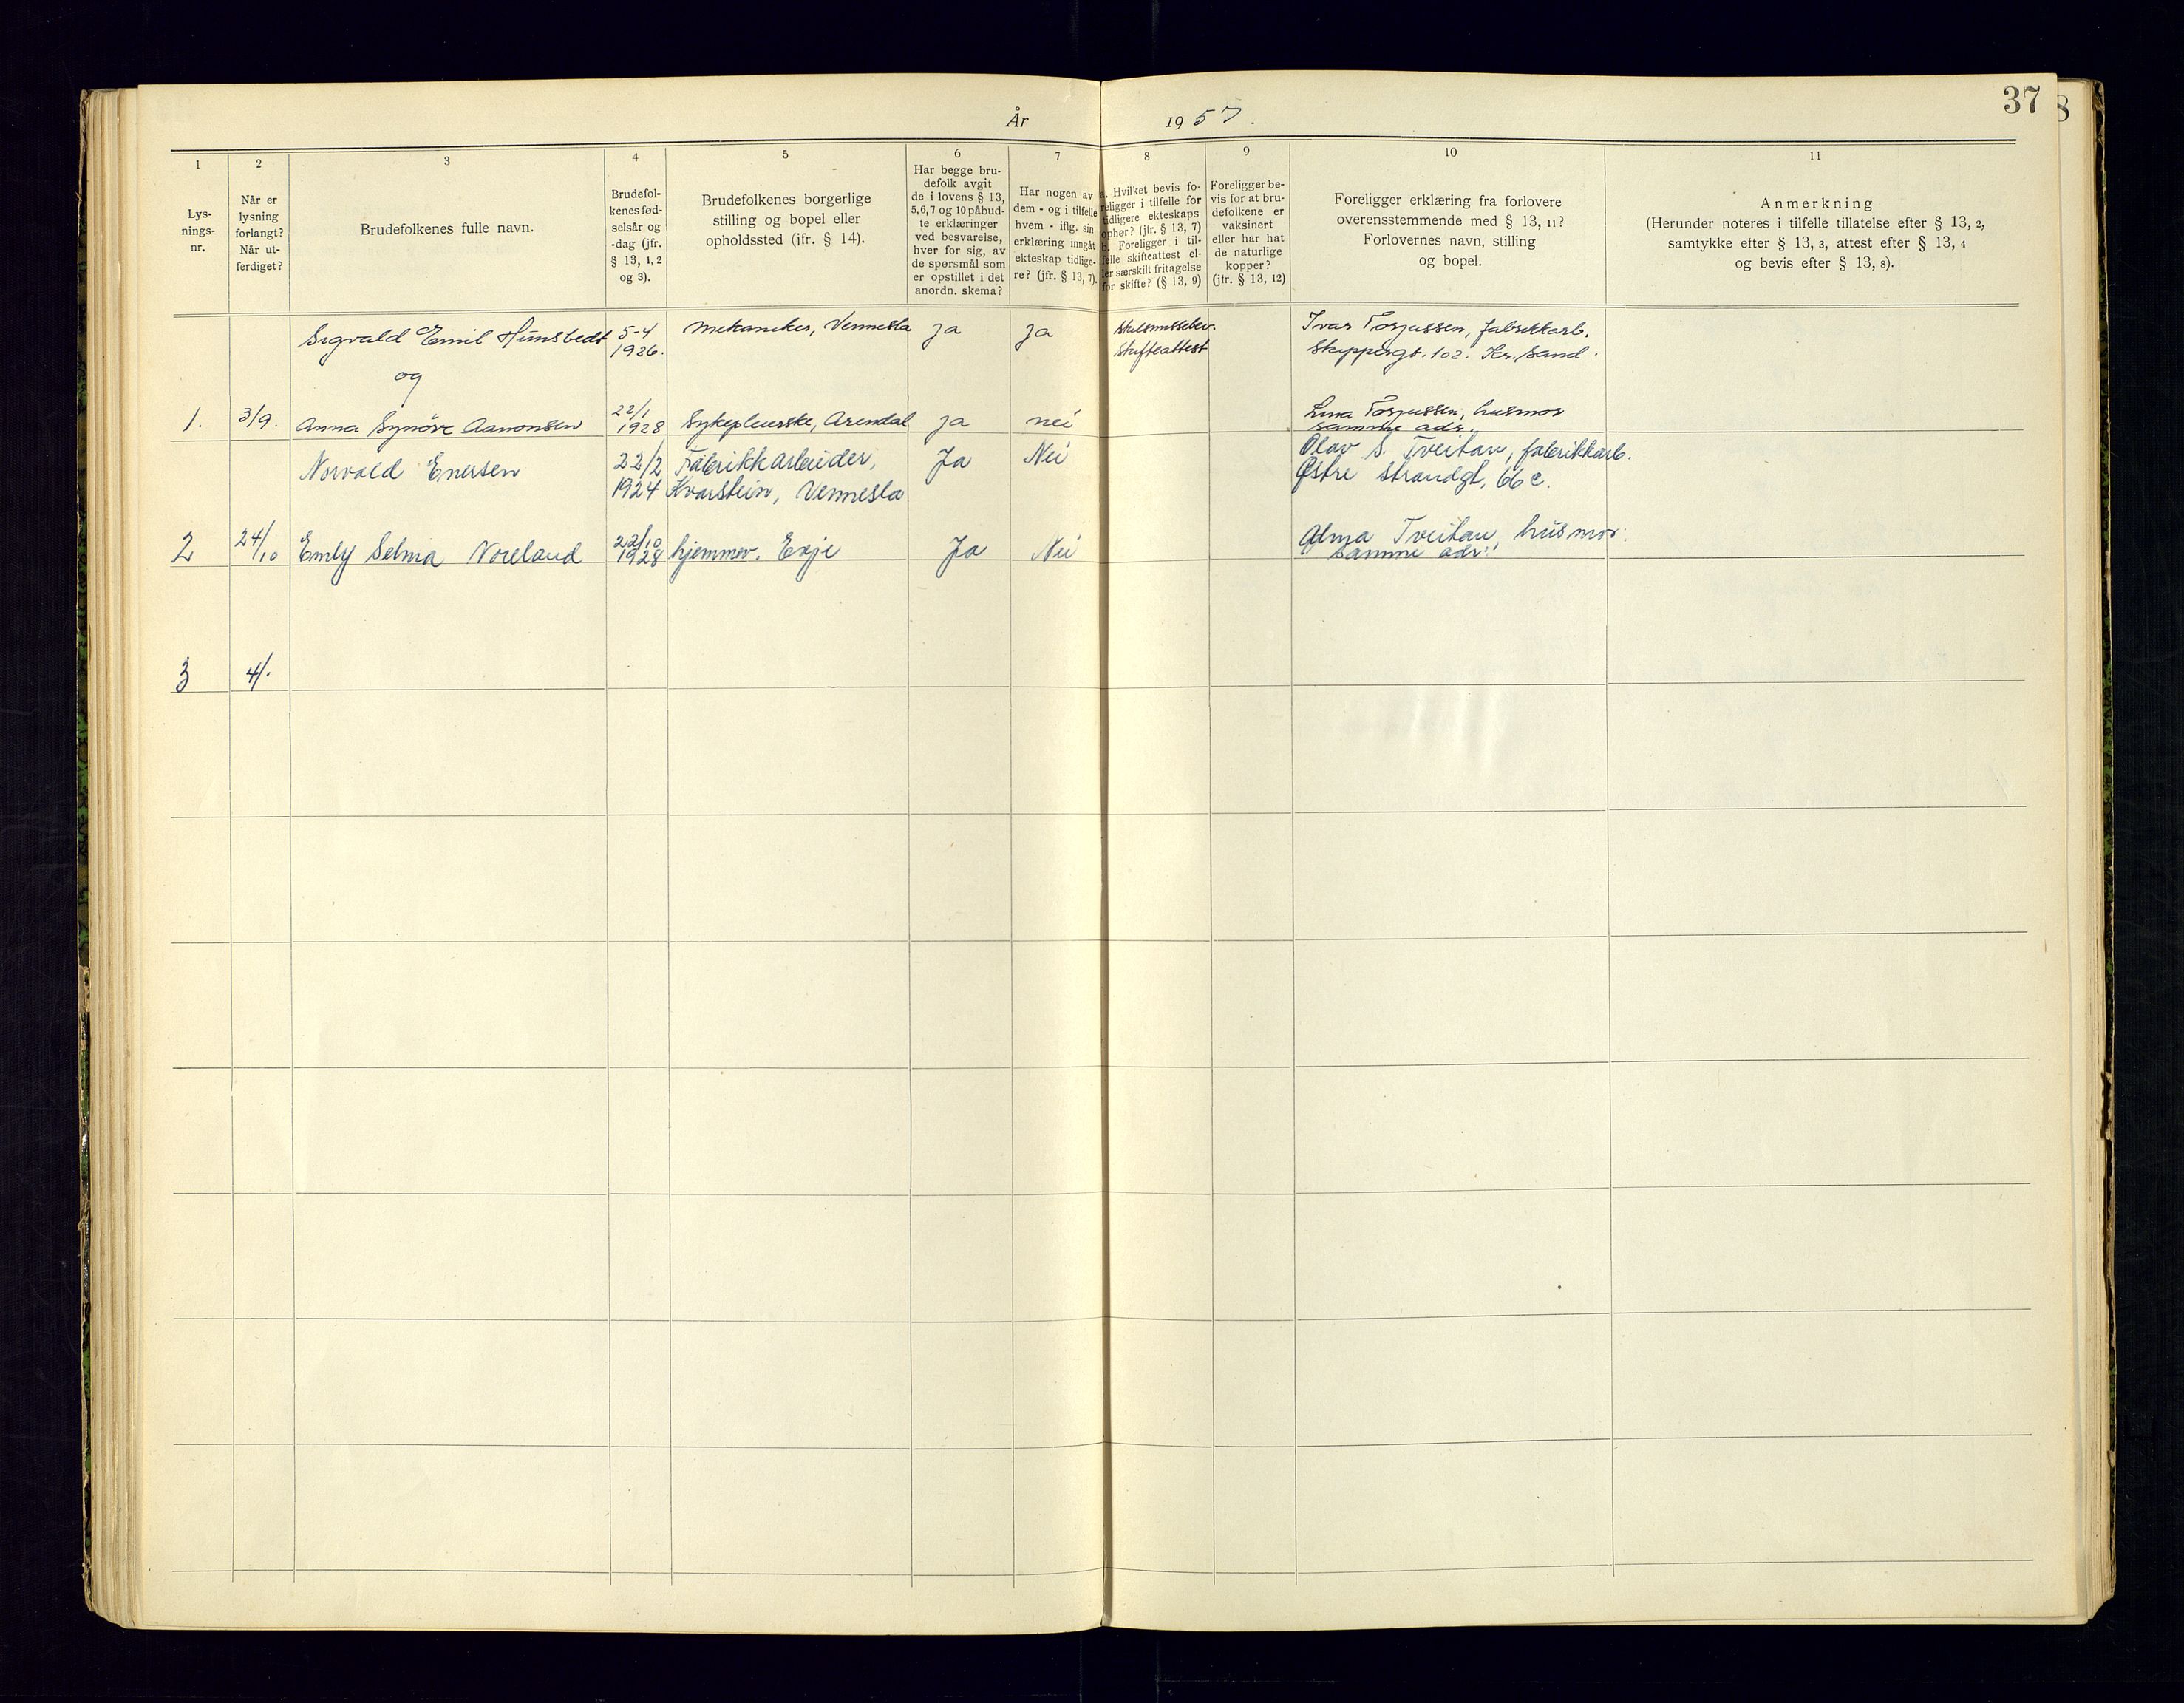 År 1957.
37
8
1
Lys-
nings-
nr.
2
Når er
lysning
forlangt?
Når ut-
ferdiget?
3
Brudefolkenes fulle navn.
4
Brudefol-
kenes fød-
selsår og
-dag (jfr.
§ 13, 1, 2
og 3).
5
Brudefolkenes borgerlige
stilling og bopel eller
opholdssted (jfr. § 14).
6
Har begge bru-
defolk avgit
de i lovens § 13,
5,6,7 og 10 påbud-
te erklæringer
ved besvarelse,
hver for sig, av
de spørsmål som
er opstillet i det
anordn. skema?
7
Har nogen av
dem - og i tilfelle
hvem - iflg. sin
erklæring inngåt
ekteskap tidlige-
re? (jfr. § 13, 7).
8
a. Hvilket bevis fo-
religger i tilfelle for
tidligere ekteskaps
ophør? (jfr. § 13, 7)
b. Foreligger i til-
felle skifteattest el-
ler særskilt fritagelse
for skifte? (§ 13, 9)
9
Foreligger be-
vis for at bru-
defolkene er
vaksinert
eller har hat
de naturlige
kopper?
(jfr. § 13, 12)
10
Foreligger erklæring fra forlovere
overensstemmende med § 13, 11?
Forlovernes navn, stilling
og bopel.
11
Anmerkning
(Herunder noteres i tilfelle tillatelse efter § 13, 2,
samtykke efter § 13, 3, attest efter § 13, 4
og bevis efter § 13, 8).
Sigvald Emil Homstedt
5-4
1926.
Mekaniker, Vennesla
ja
ja
Skilsmissebev.
Skifteattest
Ivar Torjussen, fabrikkarb.
Skippergt. 102. Kr. Sand.
og
1.
3/9.
Anna Synöve Aanonsen
22/1
1928
Sykepleierske, Arendal
ja
nei
Torjussen, husmor
samme adr.
Norvald Enersen
22/2
1924
Fabrikkarbeider,
Kvarstein, Vennesla
Ja
Nei
Olav S. Tveitan, fabrikkarb.
Østre Strandgt, 66 c.
2
24/10
Emly Selma Noreland
22/10
1928
hjemmev. Evje
Ja
Nei
Alma Tveitan, husmor
samme adr.
3
4/.